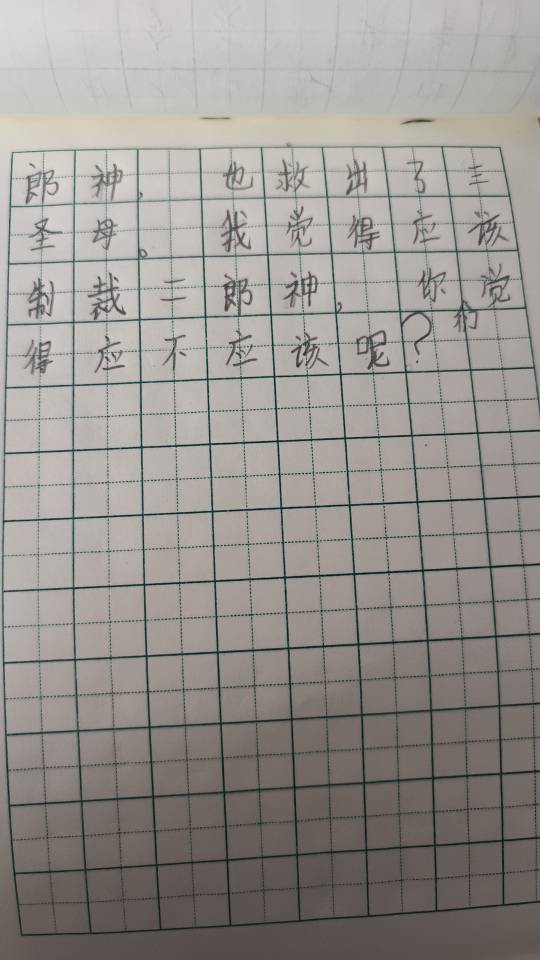 郎神，也救出了三
圣母。我觉得应该
制裁二郎神，你们觉
得应不应该呢？